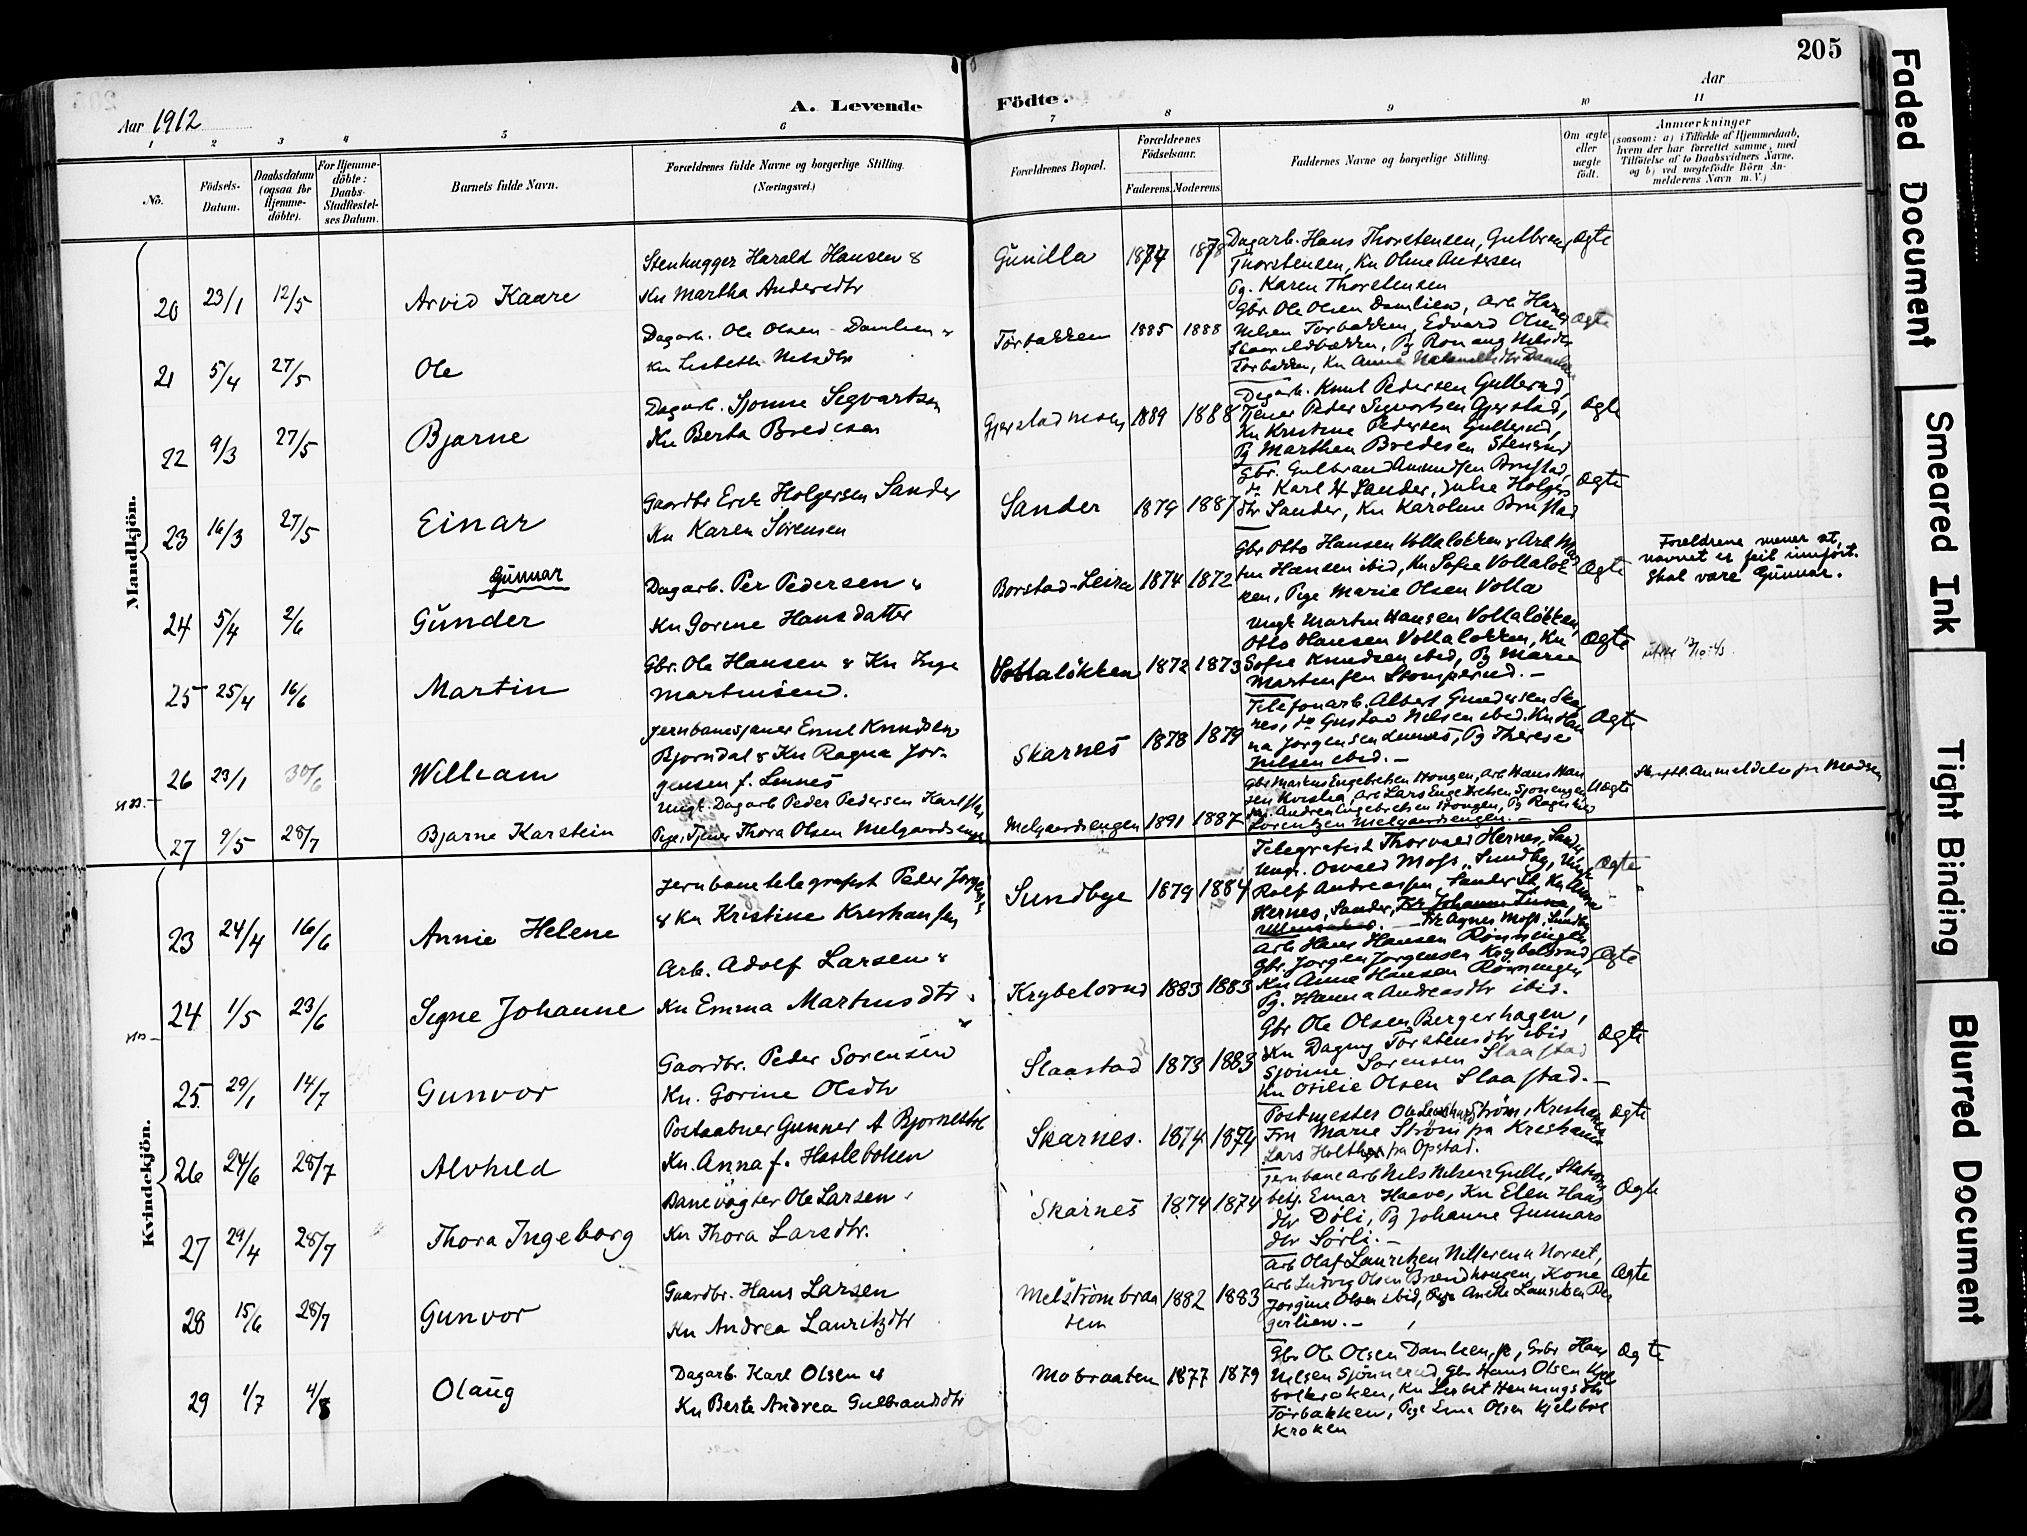 205
Aar 1912
A. Levende Födte.
Aar
1 2 3 4 5 6 7 8 9 10 11
No.
Födsels-Datum.
Daabsdatum (ogsaa for Hjemmedöbte).
For Hjemmedöbte: Daabs-Stadfæstelses Datum.
Barnets fulde Navn.
Forældrenes fulde Navne og borgerlige Stilling. (Næringsvei.)
Forældrenes Bopæl.
Forældrenes Födselsaar.
Faderens Moderens
Faddernes Navne og borgerlige Stilling.
Om ægte eller uægte födt.
Anmærkninger
(saasom: a) i Tilfælde af Hjemmedaab, hvem der har forrettet samme, med Tilföielse af to Daabsvidners Navne, og b) ved uægtefödte Börn Anmelderens Navn m. V.)
Mandkjön.
20 23/1 12/5 Arvid Kaare
Stenhugger Harald Hansen &
Kn Martha Andersdtr
Gunilla 1874 1878
Dagarb. Hans Thorstensen, Gulbran
Thorstensen, Kn Oline Andersen
Pg. Karen Thorstensen
Ægte
21 5/4 27/5 Ole
Dagarb. Ole Olsen Damlien &
Kn Lisbeth Nilsdtr
Torbakken 1885 1888
Gbr. Ole Olsen Damlien, Arb Hans
Nilsen Torbakken, Edvard Olsen
Pg Ronaug Nilsdtr
Torbakken, Kn Anne
Ægte
22 9/3 27/5 Bjarne
Dagarb. Sjonne Segvartsen
Kn Berta Bredesen
Gjerstadmoen 1889 1888
Dagarb. Knut Pedersen Gullerud,
Tjener Peder Sigvartsen Gjerstad,
Kn Kristine Pedersen Gullerud,
Pg Marthea Bredesen Stenerud
Ægte
23 16/3 27/5 Einar
Gaardbr Erik Holgersen Sander
Kn Karen Sörensen
Sander 1879 1887
Gbr. Gulbrand Amundsen Brustad,
do Karl H Sander, Julie Holgers
dtr Sander, Kn Karoline Brustad
Ægte
24 5/4 2/6 Gunnar
Gunder
Dagarb. Per Pedersen &
Kn Gorine Hansdatter
Borstad-Leira 1874 1872
Gbr Otto Hansen Vollaløkken & Arb Mar
tin Hansen ibid, Kn Sofie Volla­løk
ken, Pige Marie Olsen Volla
Ægte
Foreldrene mener at
navnet er feil innført.
Skal være Gunnar.
25 25/4 16/6 Martin
Gbr. Ole Hansen & Kn Inge
Martinsen.
Vollaløkken 1872 1873
Ungk Martin Hansen Vollaløkken,
Otto Hansen Vollaløkken, Kn
Sofie Knudsen ibid, Pg Marie
Martinsen Stomperud. —
Ægte
13/10-43.
26 23/1 30/6 William
Jernbanetjener Emil Knudsen
Bjorndal & Kn Ragna Jor-
gensen f. Lennes
Skarnes 1878 1879
Telefonarb. Albert Gundersen Skar
nes, do Gustav Nilsen ibid. Kn Han
na Jorgensen Lennes, Pg Therese
Nilsen ibid. —
Ægte
27 9/5 28/7 Bjarne Karstein
Ungk. Dagarb Peder Pedersen
Pige, Tjener Thora Olsen Melgaardsengen
Melgaardsengen 1891 1887
Gbr Markus Engebretsen Hongen, Arb Hans Han
sen Kvisla, Arb Lars Engebretsen
Andrea Engebretsen Hongen, Pg
Lorentzen Melgaardsengen. —
Uægte
Skriftl. Anmeldelse fra Madsen
Kvindekjön.
23 24/4 16/6 Annie Helene
Jernbanetelegrafist Peder Jorgensen
& Kn Kristine Kristiansen
Sundbye 1879 1884
Telegrafist Thorvald Hernes, Sander
Ungk. Osvald Moss, Sundby, Ungk
Rolf Andreassen, Sander St, Kn Anna
Hernes, Sander, Frk Johanne
Ullensaker. — Frk Agnes Moss, Sundby
Ægte
24 1/5 23/6 Signe Johanne
Arb. Adolf Larsen &
Kn Emma Martinsdtr.
Krybelorud 1883 1883
Arb Hans Hansen Rønningen
Gbr. Jorgen Jorgensen Krybelorud
Kn Anne Hansen Rønningen
Pg. Hanna Andreasdtr ibid.
Ægte
25 29/1 14/7 Gunvor
Gaardbr. Peder Sorensen
Kn. Gorine Olsdtr
Slaastad 1873 1883
Gbr Ole Olsen Bergerhagen,
Kn Dagny Torstensdtr ibid
Sjonne Sorensen Slaastad
Kn Otilie Olsen Slaastad. —
Ægte
26 24/6 28/7 Alvhild
Postaabner Gunner A Bjornestad
Kn. Anna f. Haslebolsen
Skarnes. 1874 1874
Postmester Ole Strøm, Kristiania
Fru Marie Strøm fra Kristiania
Lars Holter fra Opstad.
Ægte
27 29/4 28/7 Thora Ingeborg
Banevogter Ole Larsen
Kn Thora Larsdtr.
Skarnes 1874 1874
Jernbanearb Nils Nilsen Gulli, Stations
betj. Einar Haave, Kn Elen Hans
dtr Døli, Pg Johanne Gunnars
dtr Sørli. —
Ægte
28 15/6 28/7 Gunvor
Gaardbr. Hans Larsen
Kn Andrea Lauritzdtr
Melstrømbraa
ten 1882 1883
Arb Olaf Lauritzen Norset,
Arb Ludvig Olsen Brændhougen, Kone
Jorgine Olsen ibid, Pige Anette Lauritzen
gerlien. —
Ægte
29 1/7 4/8 Olaug
Dagarb. Karl Olsen &
Kn Berte Andrea Gulbrandsdtr
Mobraaten 1877 1879
Gbr Ole Olsen Damlien, Gbr Hans
Nilsen Sjonnerud, Gbr Hans Olsen Kjels
bolkroken, Kn Lisbet Henningsdtr
Torbakken, Pige Olsen Kjelsbol
kroken
Ægte
Faded Document
Smeared Ink
Tight Binding
Blurred Document